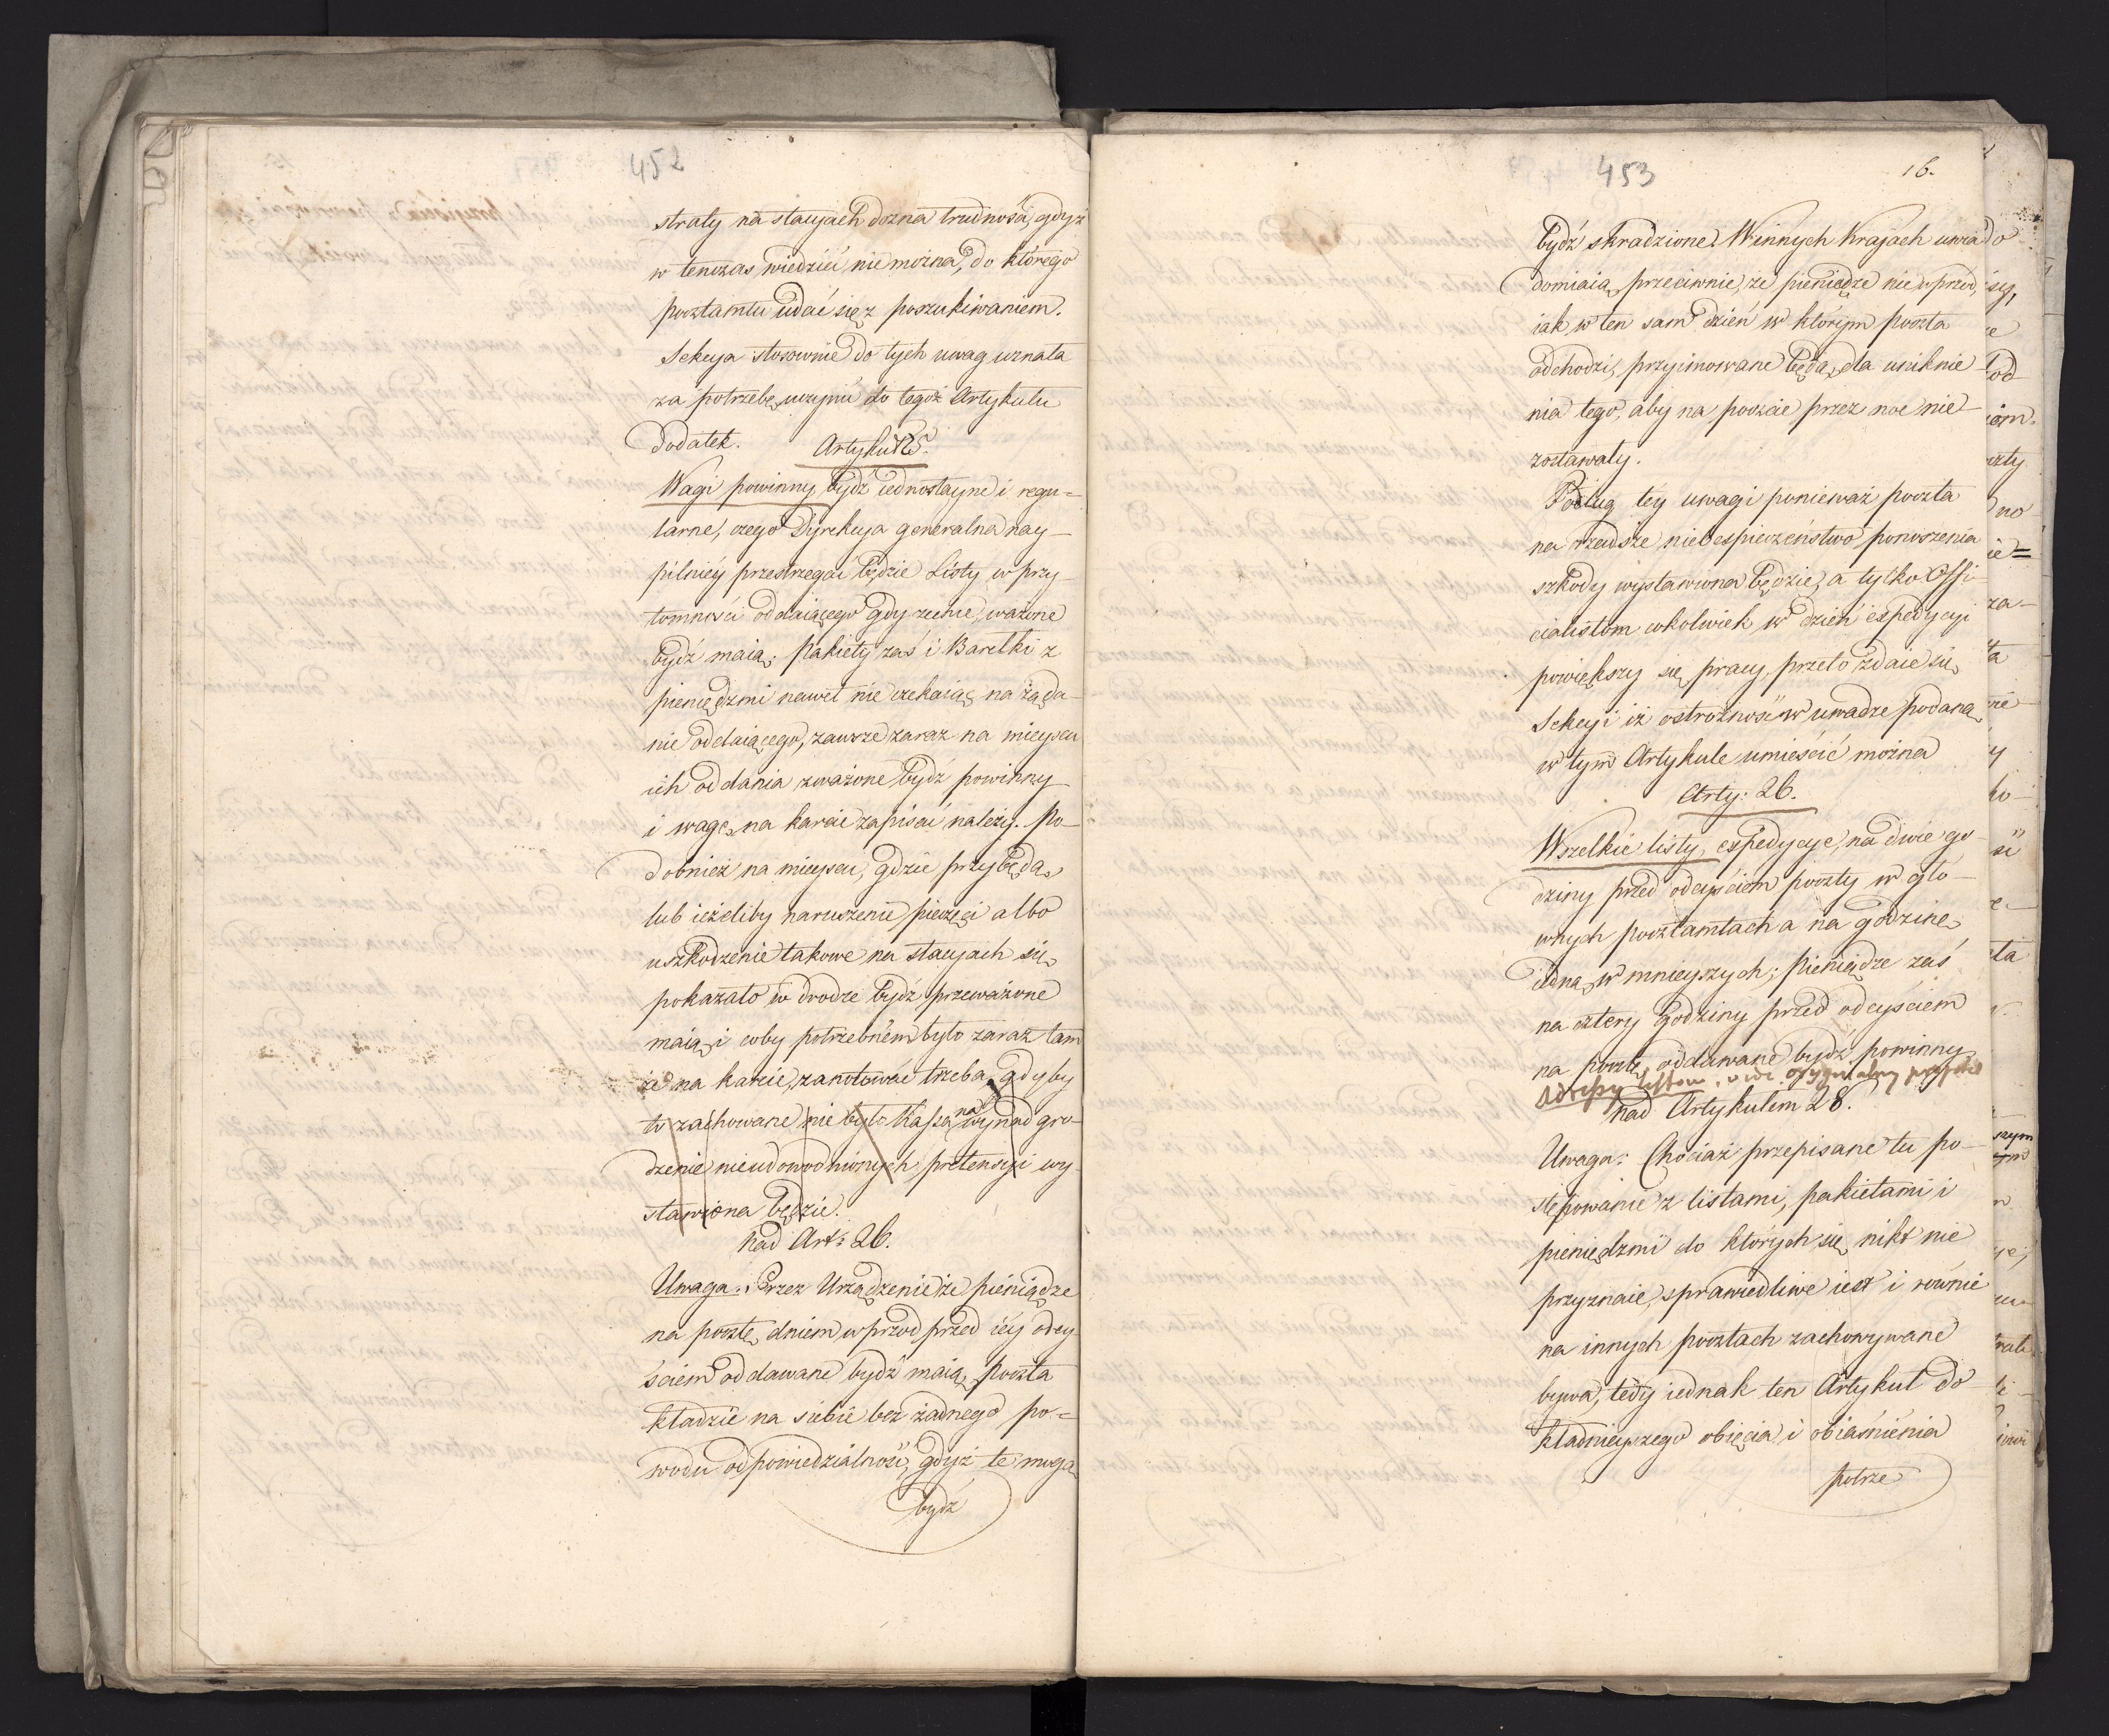 452
straty na stacyach dozna trudności, gdyż
w tenczas wiedzieć nie można, do którego
pocztamtu udać się z poszukiwaniem.
Sekcya stosownie do tych uwag uznała
za potrzebę uczynić do tegoż Artykułu
dodatek. Artykuł
Wagi powinny bydź iednostayne i regu=
larne, czego Dyrekcya generalna nay-
pilniey przestrzegać będzie Listy w przy-
tomności oddaiącego gdy zechce, ważone
bydź maią; Pakiety zaś i Baryłki z
pieniędzmi nawet nie czekaiąc na żąda-
nie oddaiącego, zawsze zaraz na mieyscu
ich oddania zważone bydź powinny
i wagę na karcie zapisać należy. Po-
dobnież na mieyscu, gdzie przybędą,
lub ieżeliby naruszenie pieczęci albo
uszkodzenie takowe na stacyach się
pokazało w drodze bydź przeważone
maią i coby potrzebnem było zaraz tam
że na karcie, zanotować trzeba, gdyby
to zachowane nie było Kassa na wynadgro-
dzenie nieudowodnionych pretensyi wy-
stawiona będzie.
nad Art: 26.
Uwaga: Przez Urządzenie że pieniądze
na pocztę dniem wprzod przed iey odey-
ściem oddawane bydź maią, poczta
kładzie na siebie bez żadnego po=
wodu odpowiedzialność, gdyż te mogą
bydź
453
16.
bydź skradzione. W innych Krajach uwia
domiaią przeciwnie, że pieniądze nie wprzod,
iak w ten sam dzień w którym poczta
odchodzi, przyimowane będą, dla uniknie
nia tego, aby na poczcie przez noc nie
zostawały.
Podług tey uwagi ponieważ poczta
na rzadsze niebespieczeństwo ponoszenia
szkody wystawiona będzie, a tylko Offi-
cialistom cokolwiek w dzień expedycyi
powiększy się pracy, przeto zdaie się
Sekcyi iż ostrożność w uwadze podaną
w tym Artykule umieścić można
Arty: 26.
Wszelkie listy, espedycye, na dwie go-
dziny przed odeyściem poczty w głó-
wnych pocztamtach a na godzinę
iedną w mnieyszych; Pieniądze zaś
na cztery godziny przed odeyściem
na pocztę oddawane bydź powinny
nad Artykułem 28.
Uwaga: Chociaż przepisane tu po-
stępowanie z listami, pakietami i
pieniędzmi do których się nikt nie
przyznaie, sprawiedliwe iest i równie
na innych pocztach zachowywane
bywa, tedy iednak ten Artykuł do
kładnieyszego obięcia i obiaśnienia
potrze